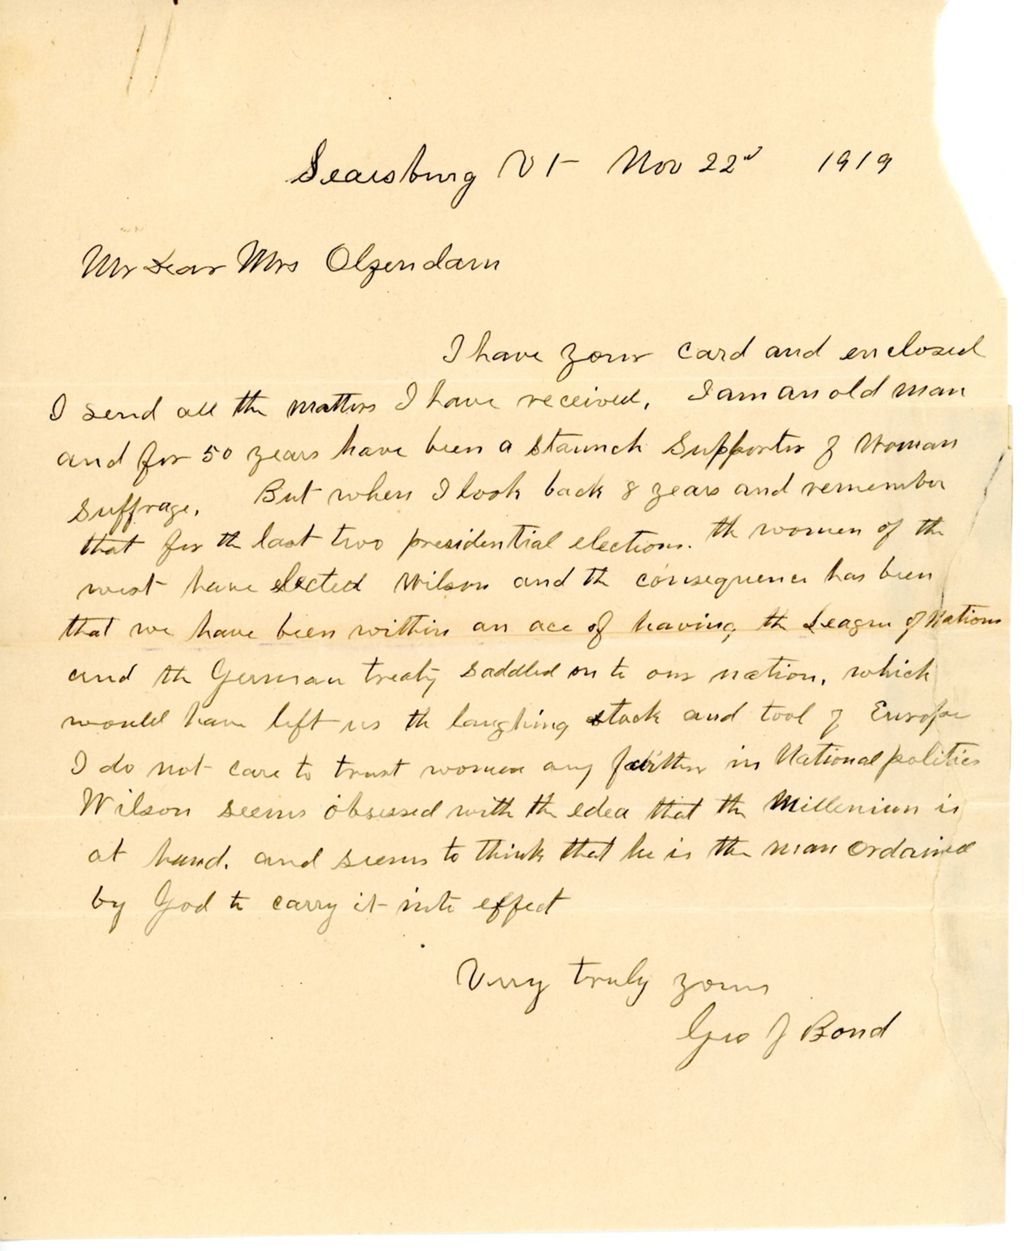 Searsburg Vt Nov 22nd 1919
My Dear Mrs Olzendam
I have your card and enclosed
I send all the matters I have received. I am an old man
and for 50 years have been a staunch supporter of Woman
suffrage. But when I look back 8 years and remember
that for the last two presidential elections. the women of the
west have elected Wilson and the consequence has been
that we have been within an ace of having the League of Nations
and the German treaty saddled on to our nation, which
would have left us the laughing stock and tool of Europe
I do not care to trust women any farther in National politics
Wilson seems obsessed with the edea that the Millenium is
at hand. and seems to think that he is the man ordained
by God to carry it into effect
Very truly yours
Geo J Bond